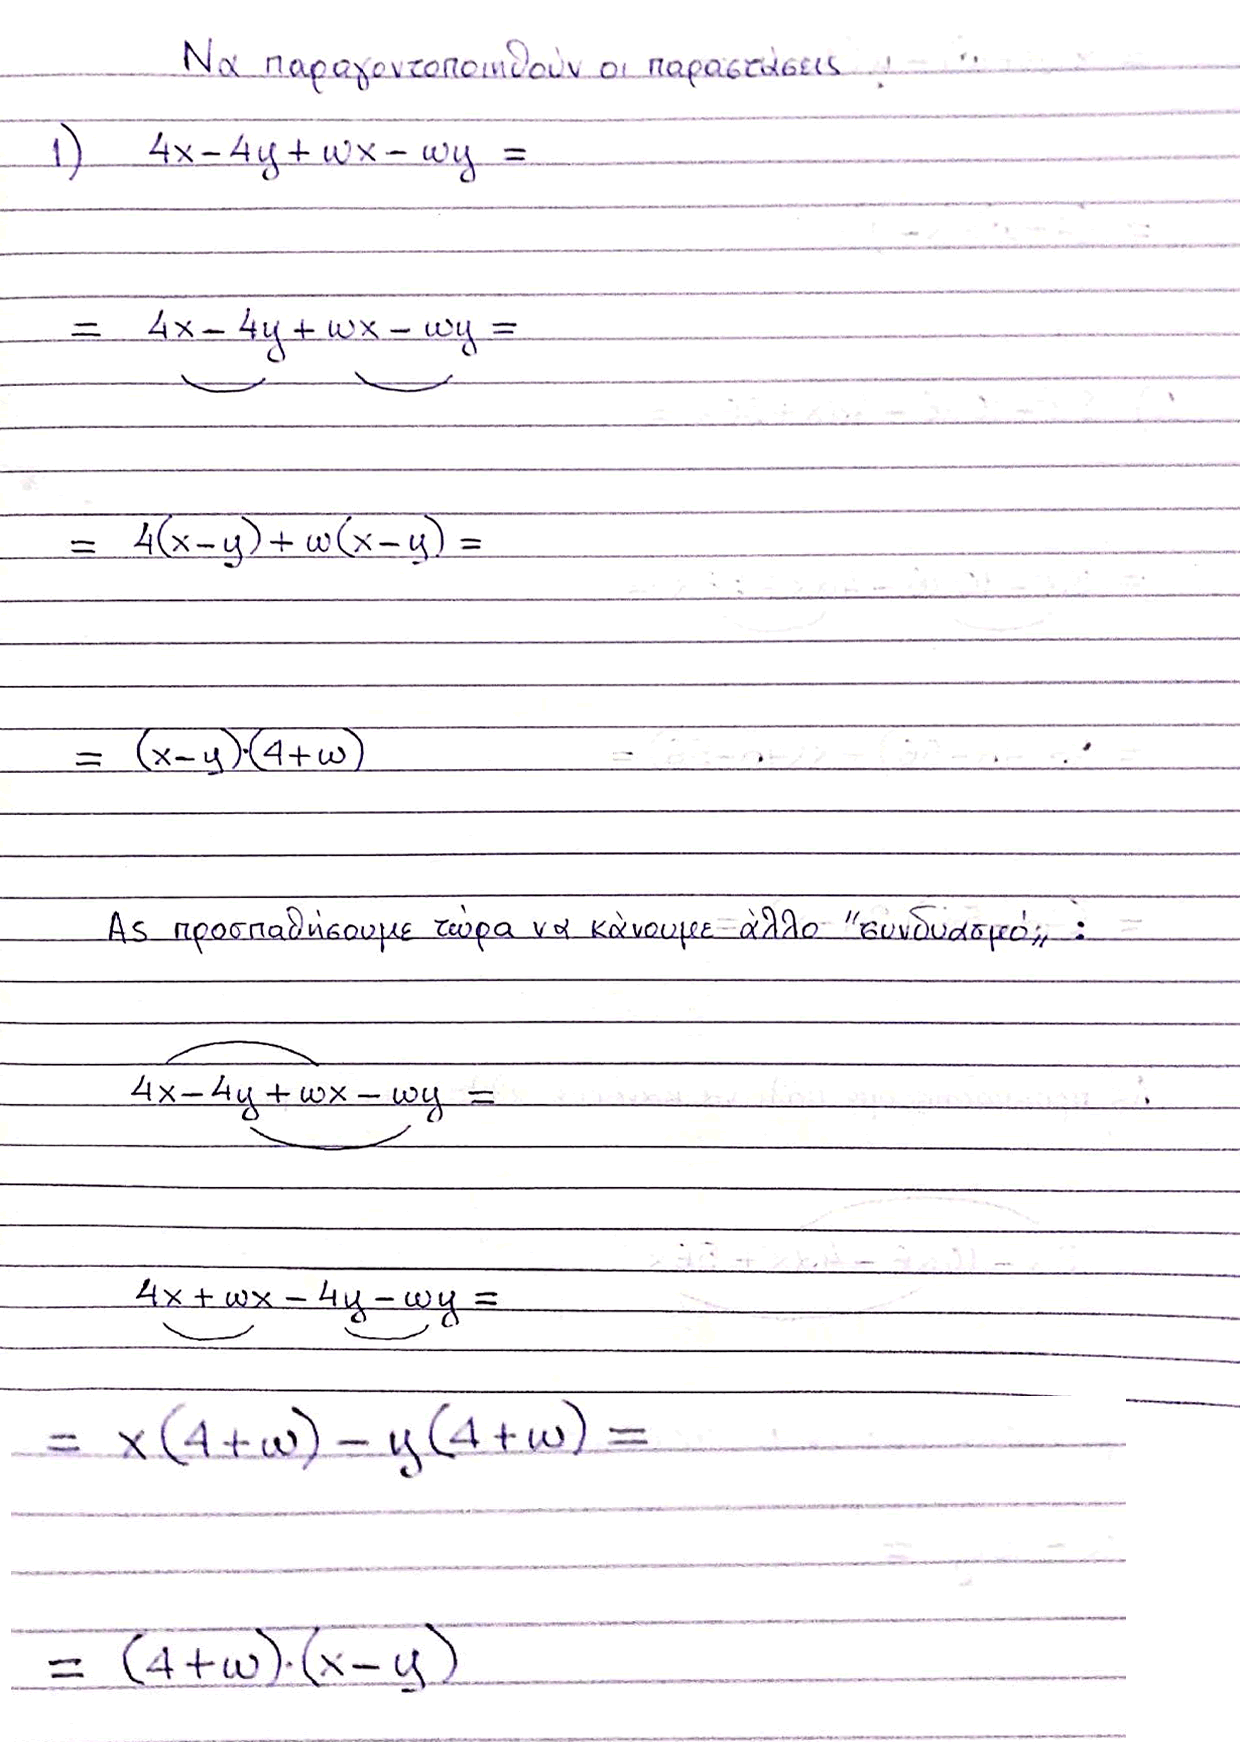 Να παραγοντοποιηθούν οι παραστάσεις
1) 4x-4y+ωx-ωy =
= 4x-4y+ωx-ωy =
= 4(x-y)+ω(x-y) =
= (x-y)·(4+ω)
Ας προσπαθήσουμε τώρα να κάνουμε άλλο "συνδυασμό„ :
4x-4y+ωx-ωy =
4x+ωx-4y-ωy =
= x(4+ω)-y(4+ω) =
= (4+ω)·(x-y)